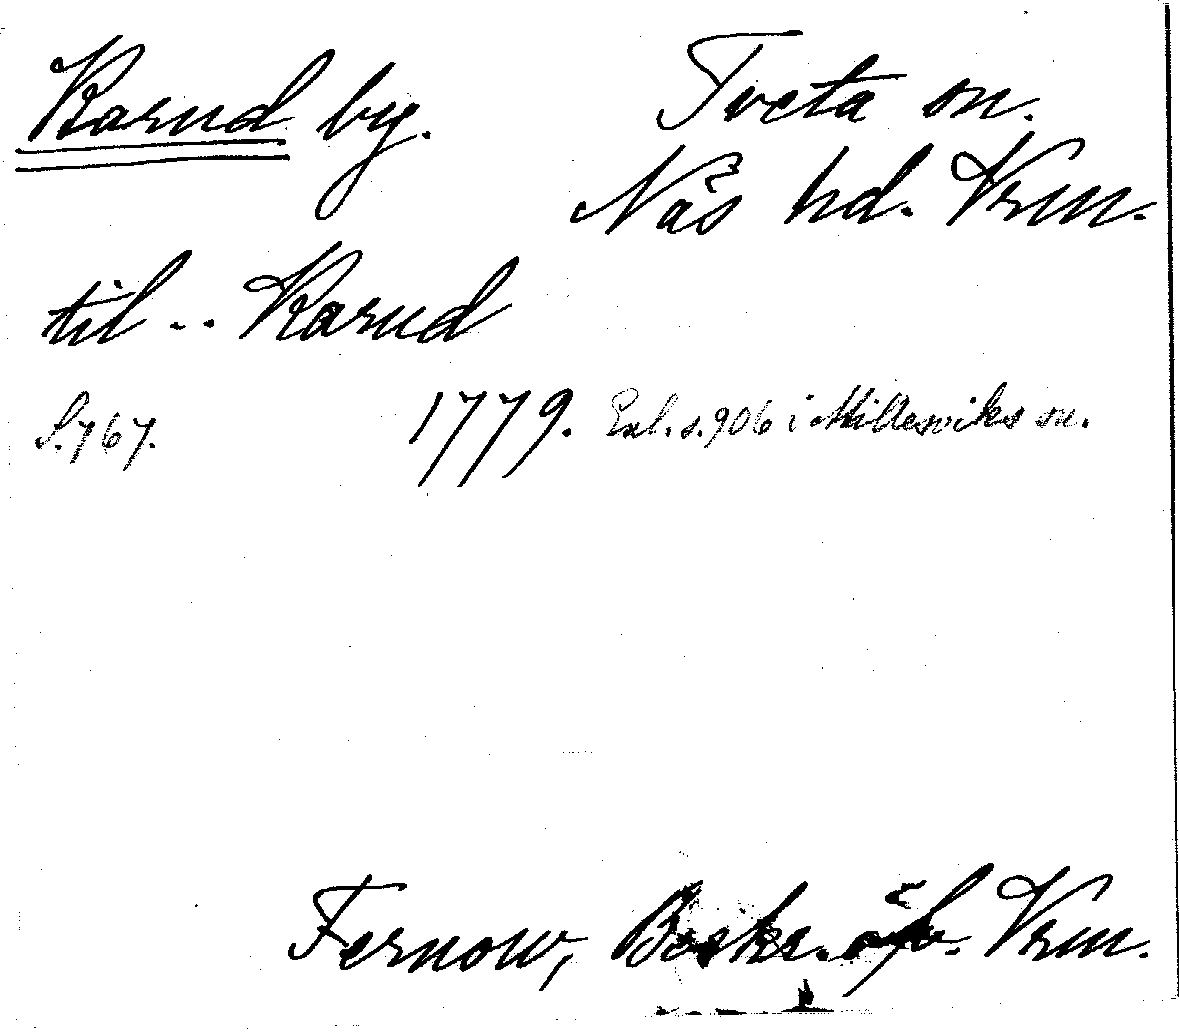 Karud by. Tveta sn.
Näs hd. Vrm.
til .. Karud
S. 767. 1779. Enl. s. 906 i Millesviks sn.
Fernow, Beskr. öfv. Vrm.